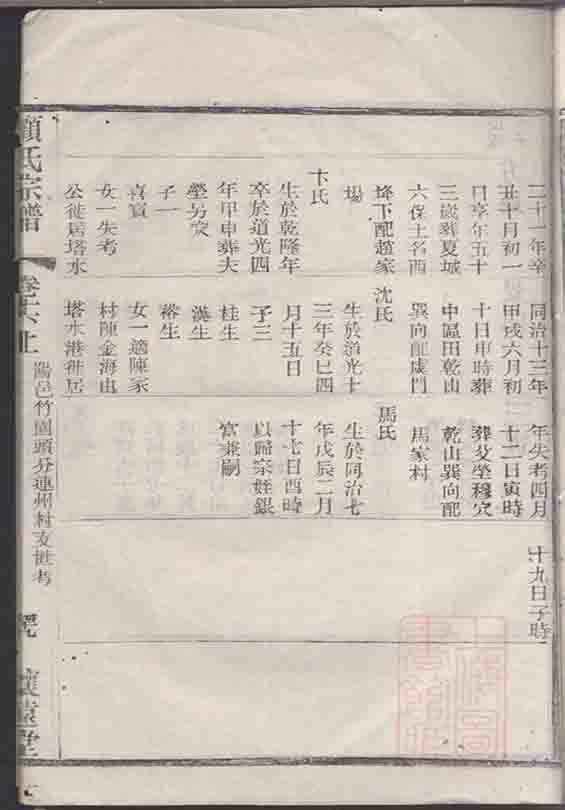 二十一年辛
丑十月初一
日享年五十
三歲葬夏城
六保土名西
下配趙家
場
卞氏
生於乾隆年
卒於道光四
年甲申葬夫
塋另穴
子一
喜寶
女一失考
公徙居塔水
同治十三年
甲戌六月初
十日申時葬
中區田乾山
巽向配虞門
沈氏
生於道光十
三年癸巳四
月十五日
子三
桂生
漢生
裕生
女一適陳家
村陳金海由
塔水港徙居
年失考四月
十二日寅時
葬父塋穆穴
乾山巽向配
馬家村
馬氏
生於同治七
年戊辰二月
十七日酉時
以歸宗姪銀
富兼嗣
十九日子時
顧氏宗譜
卷六上
陽邑竹園頭分連州村支世考
懷遠堂
上海圖書館藏